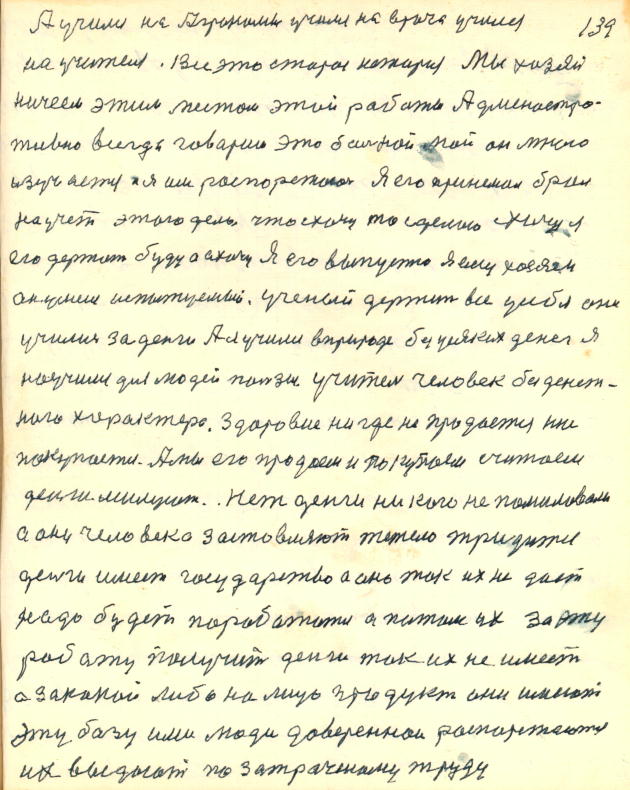 А учили на Агронома учили на врача училси 139
на учителя. Все это старая история Мы хозяй
ничаем этим местом этой работы Администро-
тивно всегда говарим это больной мой он много
изучается я им распорежаюсь Я его принемал брал
на учет этого дела что схочу то сделаю Хочу я
его держат буду а схочу Я его выпустю Я ему хозяен
он у меня испытуемый. ученый держит все у себя они
училися за деньги А я учили в природе без усяких денег Я
научился для людей ползы учител человек безденеж-
ного характера. Здоровие нигде не продается и не
покупается. А мы его продаем и покупаем считаем
деньги милуют.. Нет денги никого не помиловали
а они человека заставляют тежело трудится
денги имеет государство а оно так их не даст
надо будет поработать а потом их за эту
работу получит денги так их не имеет
а за какой либо на лицо продукт они имеют
эту базу ими люди доверенная распорежаются
их выдают по затраченому труду